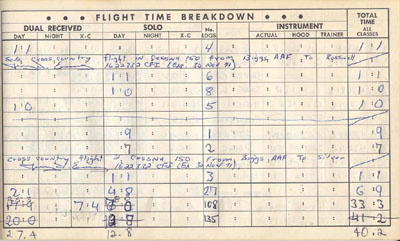 • • • FLIGHT TIME BREAKDOWN • • •
DUAL RECEIVED SOLO No. LDGS. INSTRUMENT TOTAL TIME ALL CLASSES
DAY NIGHT X-C DAY NIGHT X-C ACTUAL HOOD TRAINER
1:1 4 1:1
Solo Cross country flight in Cessna 150 from Biggs AAF, To Roswell
1622722 CFI (Exp. 30 Nov 71)
1:1 6 1:1
1:0 8 1:0
1:0 5 1:0
:9 1 :9
:7 2 :7
Cross country flight in Cessna 150 From, Biggs, AAF To Silver
1622722 CFI
1:1 3 1:1
2:1 4:8 27 6:9
7:4 108 33:3
20:0 135 41:2
27.4 2.8 40.2